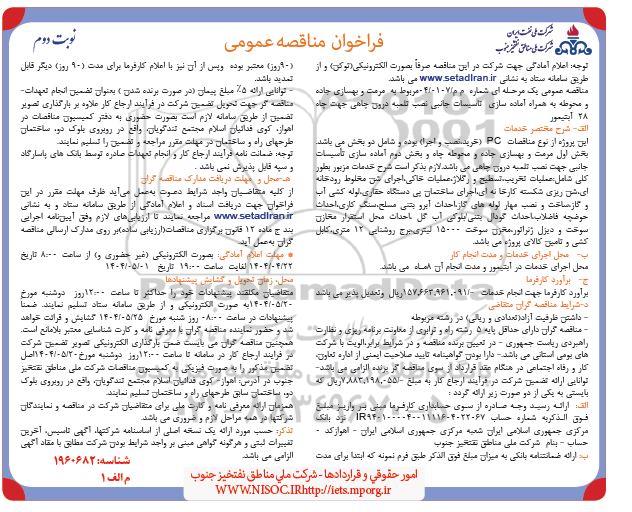 شرکت ملی نفت ایران
شرکت ملی مناطق نفتخیز جنوب
فراخوان مناقصه عمومی
نوبت دوم
توجه: اعلام آمادگی جهت شرکت در این مناقصه صرفاً بصورت الکترونیکی(توکن) و از
طریق سامانه ستاد به نشانی www.setadIran.ir می باشد.
مناقصه عمومی یک مرحله ای شماره م م/۰۴/۰۱۰۷ مربوط به مرمت و بهسازی جاده
و محوطه به همراه آماده سازی تأسیسات جانبی نصب تلمبه درون چاهی جهت چاه
۲۸ آبتیمور
الف- شرح مختصر خدمات
این پروژه از نوع مناقصات PC (خرید،نصب و اجرا) بوده و شامل دو بخش می باشد.
بخش اول مرمت و بهسازی جاده و محوطه چاه و بخش دوم آماده سازی تأسیسات
جانبی جهت نصب تلمبه درون چاهی می باشد.لازم بذکر است شرح خدمات مزبور بطور
کلی شامل:عملیات تخریب،تسطیح و رگلاژ،عملیات خاکی،اجرای شن مخلوط رودخانه
ای،شن ریزی شکسته کارخانه ای،اجرای ساختمان بی دستگاه حفاری،لوله کشی آب
و گاز،ساخت و نصب مهار لوله های گاز،احداث آبرو بتنی مسلح،سنگ کاری،احداث
حوضچه فاضلاب،احداث گودال بتنی/بلوکی آب گل ،احداث محل استقرار مخازن
سوخت و دیزل ژنراتور،مخزن سوخت ۱۵۰۰۰ لیتری،برج روشنایی ۱۲ متری،کابل
کشی و تامین کالای پروژه می باشد.
ب- محل اجرای خدمات و مدت انجام کار
محل اجرای خدمات در آبتیمور و مدت انجام آن ۸ماه می باشد.
ج- برآورد کارفرما
برآورد کارفرما جهت انجام خدمات ۱۵۷,۶۶۳,۹۶۱,۰۹۱/-ریال وتعدیل پذیر می باشد
د-شرایط مناقصه گران متقاضی
- داشتن ظرفیت آزاد(تعدادی و ریالی) در رشته مربوطه
- مناقصه گران دارای حداقل پایه ۵ رشته راه و ترابری از معاونت برنامه ریزی و نظارت
راهبردی ریاست جمهوری - در تعیین برنده مناقصه و در شرایط برابر،الویت با شرکت
های بومی استانی می باشد.- دارا بودن گواهینامه تایید صلاحیت ایمنی از اداره تعاون،
کار و رفاه اجتماعی در هنگام عقد قرارداد از سوی مناقصه گر برنده الزامی می باشد-
توانایی ارائه تضمین شرکت در فرآیند ارجاع کار به مبلغ ۷,۸۸۳,۱۹۸,۰۵۵/-ریال که
بایستی به یکی از دو صورت زیر ارائه گردد :
الف: ارائه رسید وجه صادره از سوی حسابداری کارفرما مبنی بر واریز مبلغ
فوق الذکر به شماره حساب IR۹۴۰۱۰۰۰۰۴۰۰۱۱۱۱۶۰۴۰۲۲۰۶۷ نزد بانک
مرکزی جمهوری اسلامی ایران شعبه مرکزی جمهوری اسلامی ایران - اهوازکد -
حساب - بنام شرکت ملی مناطق نفتخیز جنوب
ب: ارائه ضمانتنامه بانکی به میزان مبلغ فوق الذکر طبق فرم نمونه که ابتدا برای مدت
(۹۰روز) معتبر بوده وپس از آن نیز با اعلام کارفرما برای مدت (۹۰ روز) دیگر قابل
تمدید باشد.
- توانایی ارائه ۵٪ مبلغ پیمان (در صورت برنده شدن ) بعنوان تضمین انجام تعهدات-
مناقصه گر جهت تحویل تضمین شرکت در فرآیند ارجاع کار علاوه بر بارگذاری تصویر
تضمین از طریق سامانه لازم است بصورت حضوری به دفتر کمیسیون مناقصات در
اهواز، کوی فدائیان اسلام مجتمع تندگویان، واقع در روبروی بلوک دو، ساختمان
طرحهای راه و ساختمان در مهلت مقرر مراجعه و تضمین را تسلیم نمایند.
توجه: ضمانت نامه فرآیند ارجاع کار و انجام تعهدات صادره توسط بانک های پاسارگاد
و سپه قابل پذیرش نمی باشد .
هـ-محل و مهلت دریافت مدارک مناقصه گران
از کلیه متقاضیان واجد شرایط دعوت به‌عمل می‌آید ظرف مهلت مقرر در این
فراخوان جهت دریافت اسناد و اعلام آمادگی از طریق سامانه ستاد و به نشانی
www.setadIran.ir مراجعه نمایند تا ارزیابی‌های لازم وفق آیین‌نامه اجرایی
بند ج ماده ۱۲ قانون برگزاری مناقصات(ارزیابی ساده)بر روی مدارک ارسالی مناقصه
گران به‌عمل آید.
مهلت اعلام آمادگی: بصورت الکترونیکی (غیر حضوری و) از ساعت ۸:۰۰ تاریخ
۱۴۰۴/۰۴/۲۲ لغایت ساعت ۱۹:۰۰ تاریخ ۱۴۰۴/۰۵/۰۱
محل، زمان تحویل و گشایش پیشنهادها
متقاضیان مکلفند پیشنهادات خود را حداکثر تا ساعت ۱۲:۰۰روز دوشنبه مورخ
۱۴۰۴/۰۵/۲۰به صورت الکترونیکی و از طریق سامانه ستاد تسلیم نمایند. ضمنا
پیشنهادات در ساعت ۰۸:۰۰ روز شنبه مورخ ۱۴۰۴/۰۵/۲۵ گشایش و قرائت خواهد
شد و حضور نماینده مناقصه گران با معرفی نامه و کارت شناسایی معتبر بلامانع است.
همچنین مناقصه گران می بایست ضمن بارگذاری الکترونیکی تصویر تضمین شرکت
در فرایند ارجاع کار در سامانه تا ساعت ۱۲:۰۰روز دوشنبه مورخ۱۴۰۴/۰۵/۲۰اصل
تضمین مذکور را به صورت فیزیکی به کمیسیون مناقصات شرکت ملی مناطق نفتخیز
جنوب در آدرس: اهواز- کوی فدائیان اسلام مجتمع تندگویان، واقع در روبروی بلوک
دو، ساختمان سابق طرحهای راه و ساختمان تسلیم نمایند.
همزمان ارائه معرفی نامه و کارت ملی برای متقاضیان شرکت در مناقصه و نمایندگان
شرکتها در همه مراحل لازم و ضروری می باشد.
تذکر: حسب مورد ارائه یک نسخه اصلی از اساسنامه شرکتها، آگهی تاسیس، آخرین
تغییرات ثبتی و هرگونه گواهی مبنی بر واجد شرایط بودن شرکت مطابق با مقاد آگهی
الزامی می باشد.
شناسه: ۱۹۶۰۶۸۲
م الف ۱
امور حقوقی و قراردادها - شرکت ملی مناطق نفتخیز جنوب
WWW.NISOC.IRhttp://iets.mporg.ir